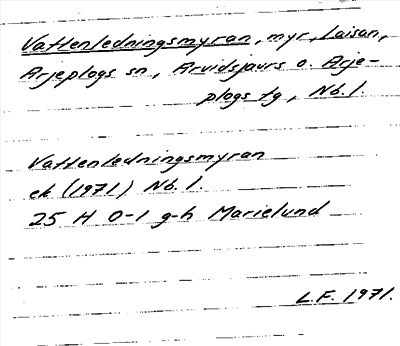 Vattenledningsmyran, myr, Laisan,
Arjeplogs sn, Arvidsjaurs o. Arje-
plogs tg, Nb. l.
Vattenledningsmyran
ek (1971) Nb. l.
25 H 0-1 g-h Marielund
L.F. 1971.